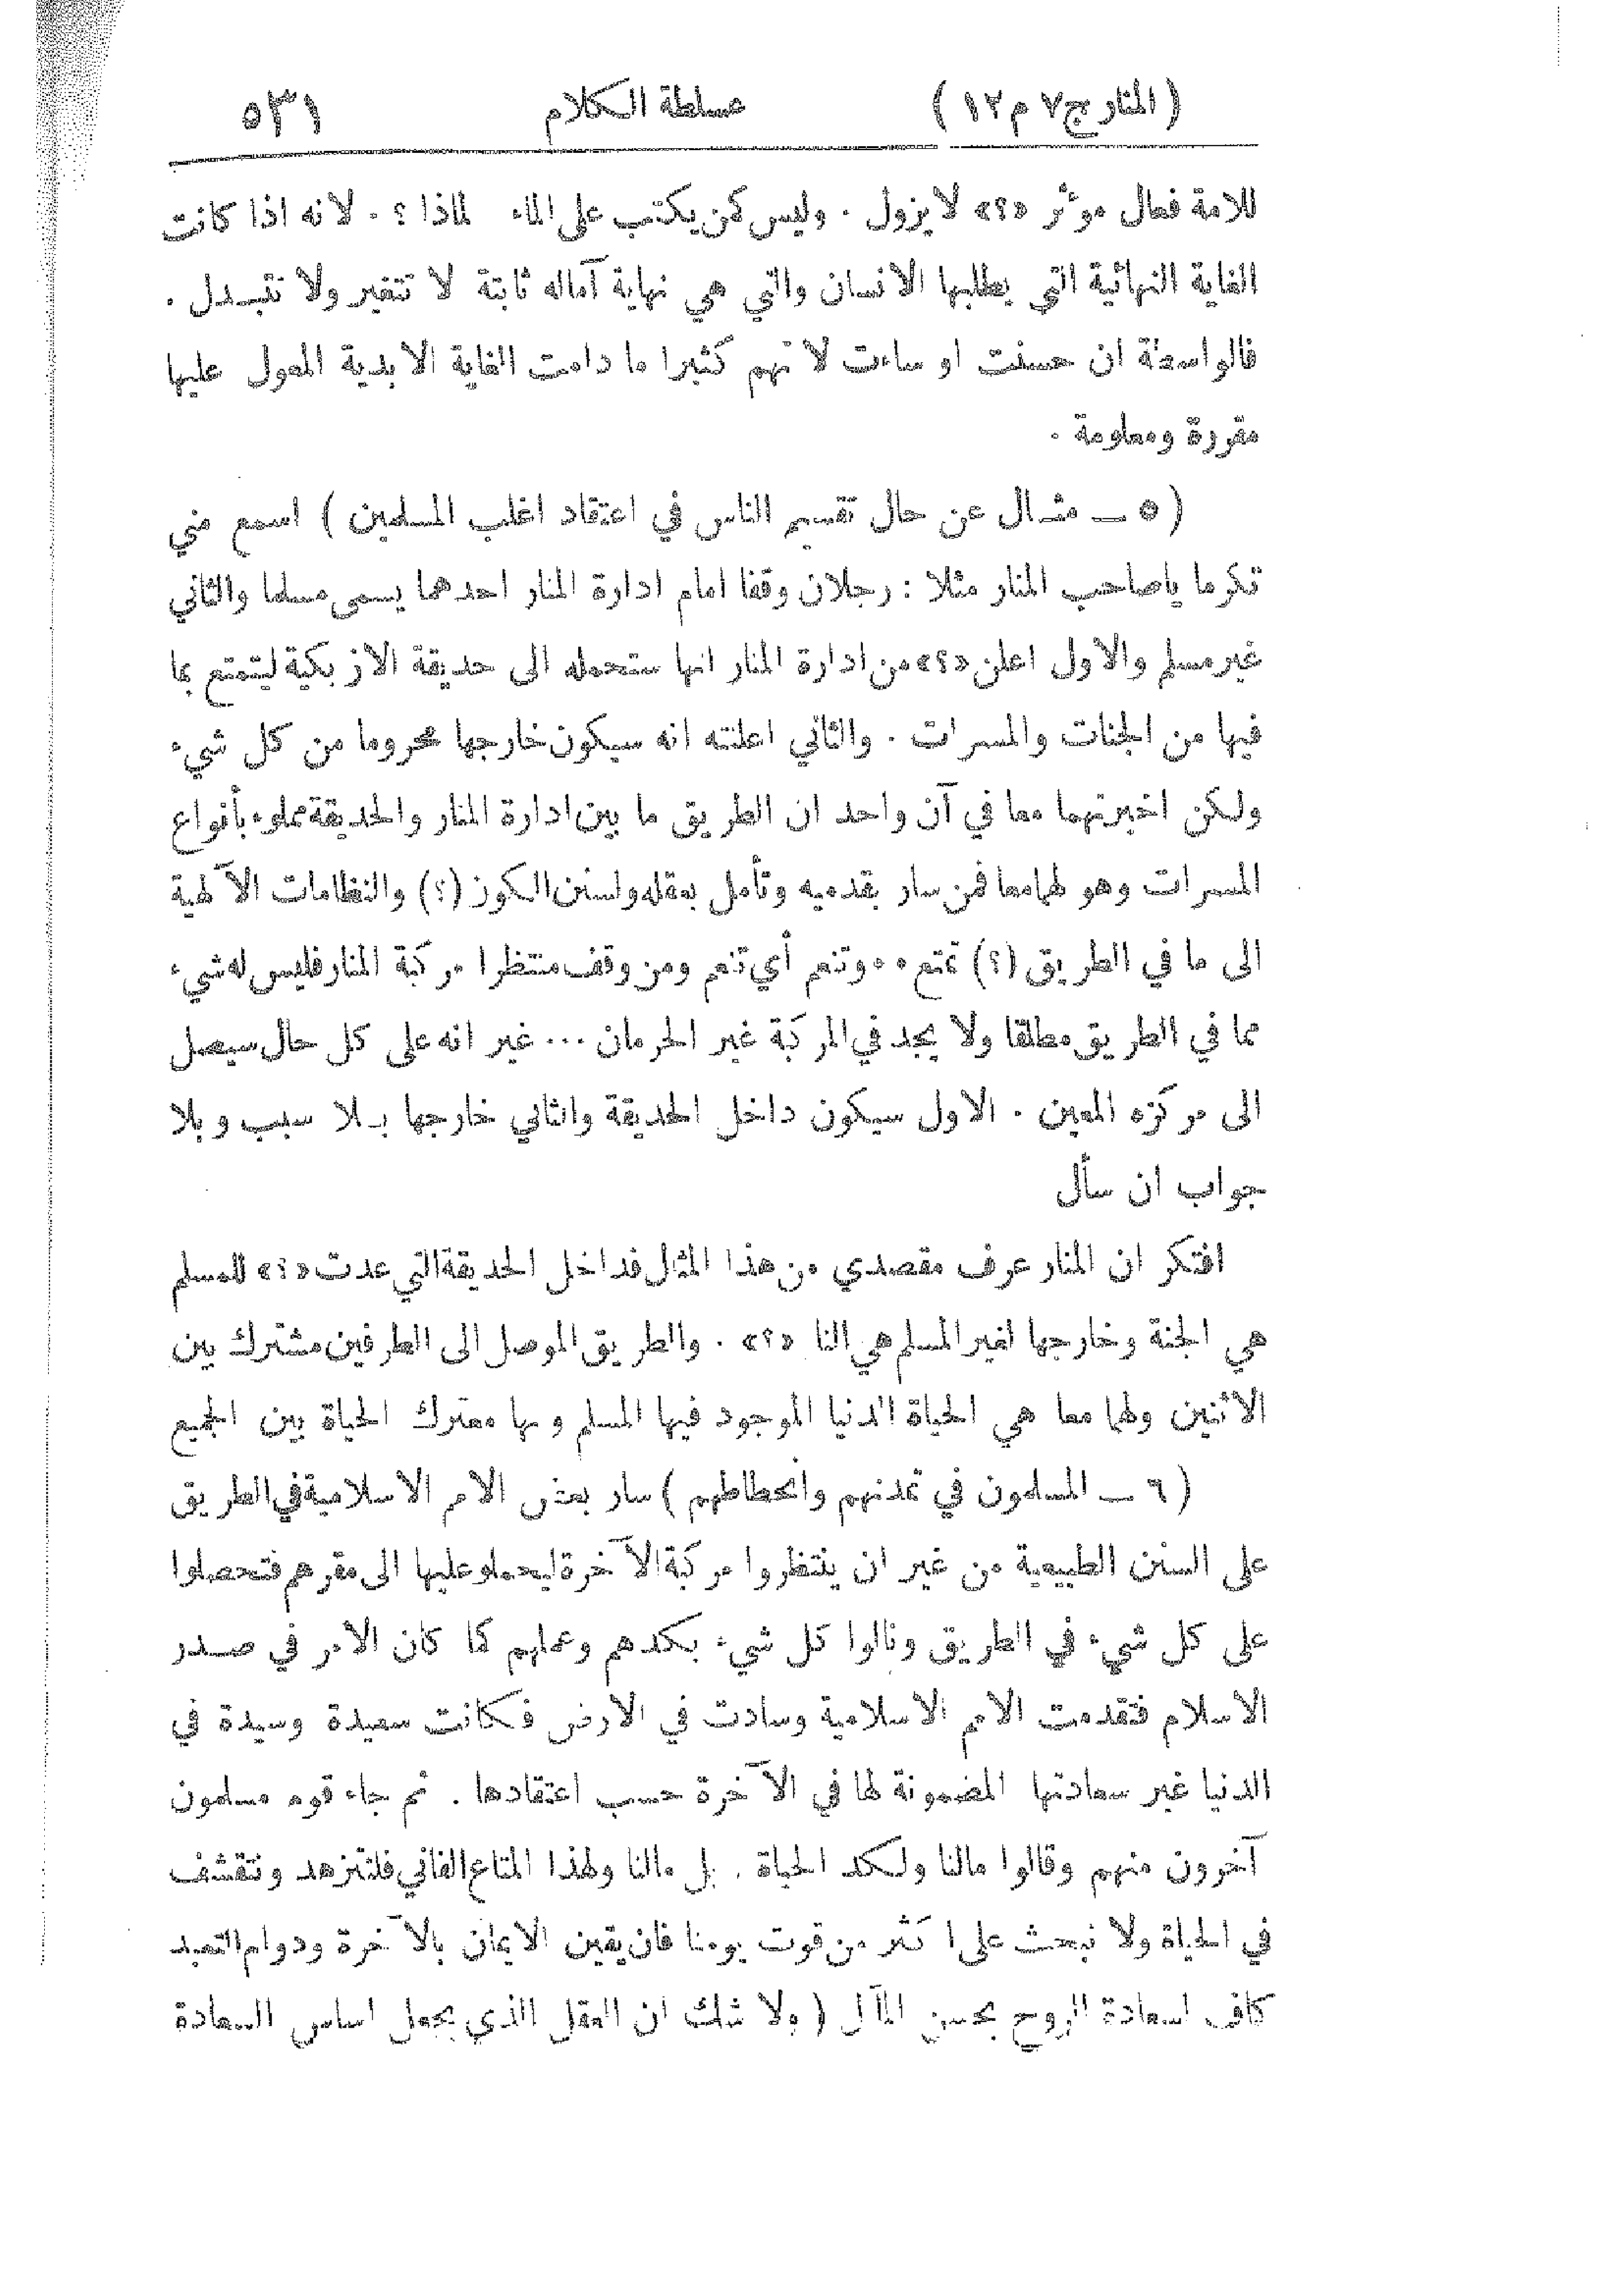 (المنار ج٧ م١٢) عسلطة الكلام ٥٣١
للامة فعال موثر «؟» لا يزول . وليس كمن يكتب على الماء لماذا ؟ . لانه اذا كانت
الغاية النهائية التي يطلبها الانسان والتي هي نهاية آماله ثابتة لا تتغير ولا تتبدل .
فالواسطة ان حسنت او ساءت لا تهم كثيرا ما دامت الغاية الابدية المعول عليها
مقررة ومعلومة .
( ٥ ــ مثال عن حال تقسيم الناس في اعتقاد اغلب المسلمين ) اسمع مني
تكرما ياصاحب المنار مثلا : رجلان وقفا امام ادارة المنار احدهما يسمى مسلما والثاني
غير مسلم والاول اعلن «؟» من ادارة المنار انها ستحمله الى حديقة الازبكية ليتمتع بما
فيها من الجنات والمسرات . والثاني اعلنته انه سيكون خارجها محروما من كل شيء
ولكن اخبرتهما معا في آن واحد ان الطريق ما بين ادارة المنار والحديقة مملوء بأنواع
المسرات وهو لهما معا فمن سار بقدميه وتأمل بعقله ولسنن الكون (؟) والنظامات الآلهية
الى ما في الطريق (؟) تمتع ٠٠ وتنعم أي تنعم ومن وقف منتظرا مركبة المنار فليس له شيء
مما في الطريق مطلقا ولا يجد في المركبة غير الحرمان ... غير انه على كل حال سيصل
الى مركزه المعين . الاول سيكون داخل الحديقة والثاني خارجها بلا سبب وبلا
جواب ان سأل
افتكر ان المنار عرف مقصدي من هذا المثال فداخل الحديقة التي عدت «؟» للمسلم
هي الجنة وخارجها لغير المسلم هي النا «؟» . والطريق الموصل الى الطرفين مشترك بين
الاثنين ولهما معا هي الحياة الدنيا الموجود فيها المسلم وبها معترك الحياة بين الجميع
( ٦ ــ المسلمون في تمدنهم وانحطاطهم ) سار بعض الامم الاسلامية في الطريق
على السنن الطبيعية من غير ان ينتظروا مركبة الآخرة ليحملو عليها الى مقرهم فتحصلوا
على كل شيء في الطريق ونالوا كل شيء بكدهم وعملهم كما كان الامر في صدر
الاسلام فتقدمت الامم الاسلامية وسادت في الارض فكانت سعيدة وسيدة في
الدنيا غير سعادتها المضمونة لها في الآخرة حسب اعتقادها . ثم جاء قوم مسلمون
آخرون منهم وقالوا مالنا ولكد الحياة . بل مالنا ولهذا المتاع الفاني فلنتزهد ونتقشف
في الحياة ولا نبحث على اكثر من قوت يومنا فان يقين الايمان بالآخرة ودوام التعبد
كاف لسعادة الروح بحسن المآل ( ولا شك ان العقل الذي يجعل اساس السعادة